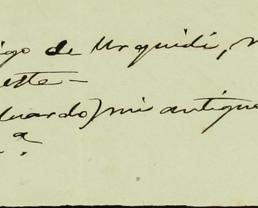 igo de Urquidi,
este—
duardo) mi antigu
a.